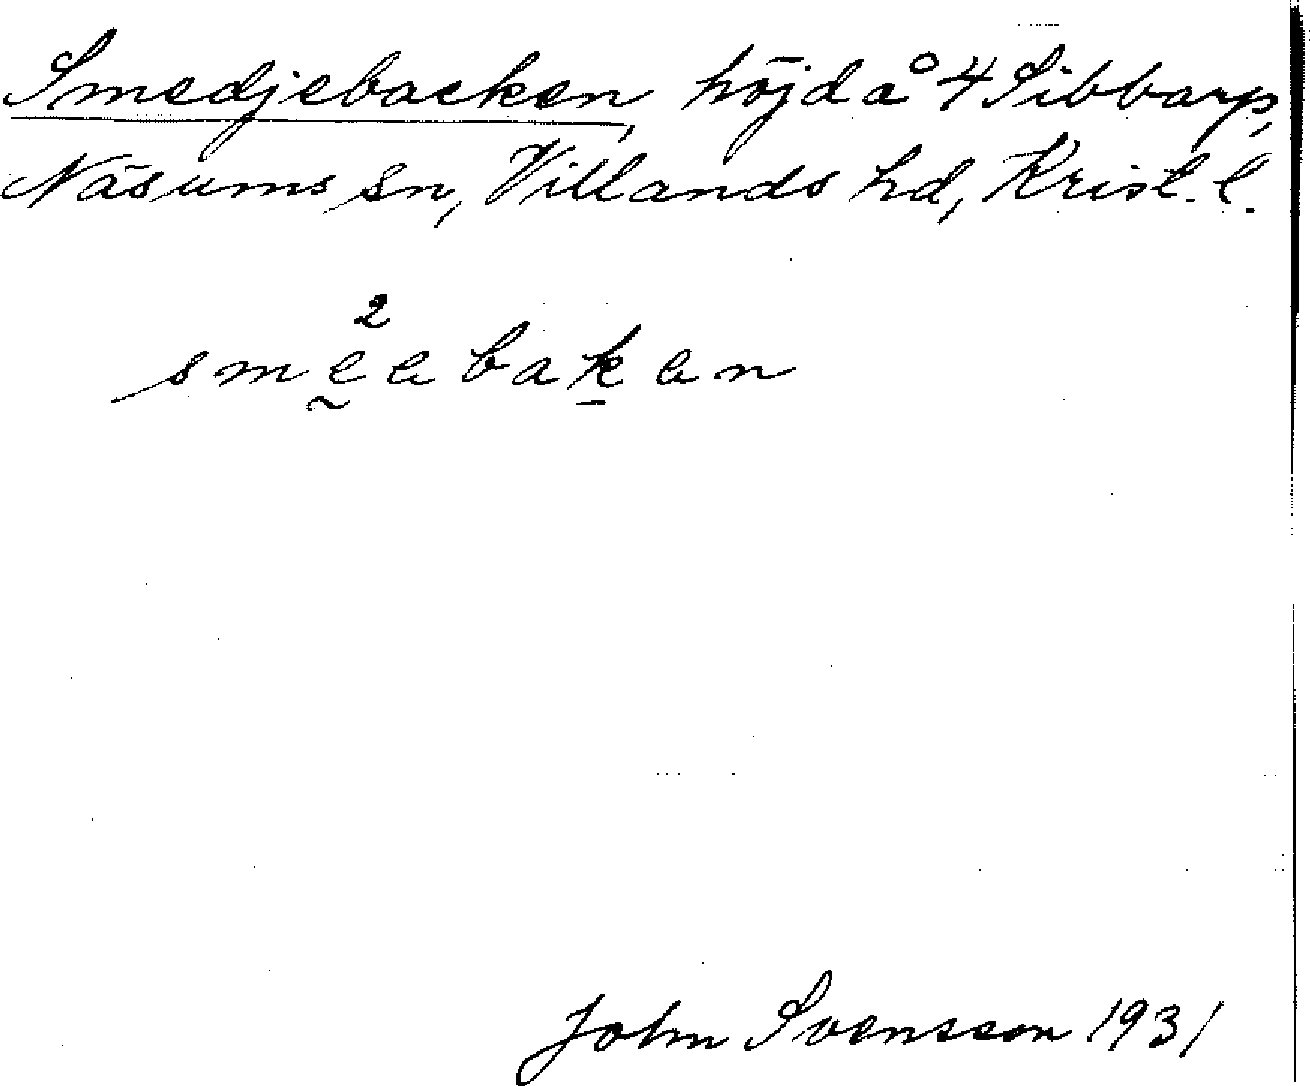 Smedjebacken, höjd å 4 Sibbarp,
Näsums sn, Villands hd, Krist. l.
2
smeabakan
John Svensson 1931